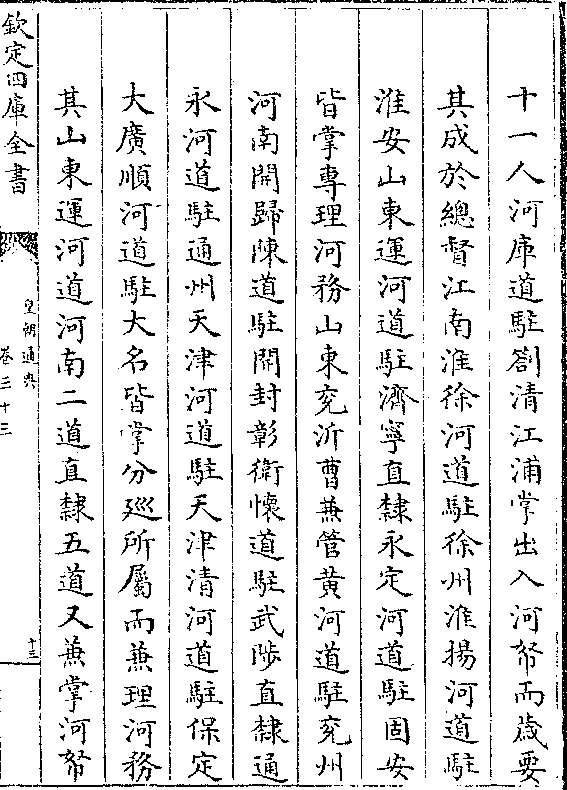 十一人河庫道駐劄清江浦掌出入河帑而歳要
其成於總督江南淮徐河道駐徐州淮揚河道駐
淮安山東運河道駐濟寧直隸永定河道駐固安
皆掌專理河務山東兖沂曹兼管黄河道駐兖州
河南開歸陳道駐開封彰衛懐道駐武陟直隸通
永河道駐通州天津河道駐天津清河道駐保定
大廣順河道駐大名皆掌分廵所屬而兼理河務
其山東運河道河南二道直隸五道又兼掌河帑
欽定四庫全書
皇朝通典
卷三十三
十三